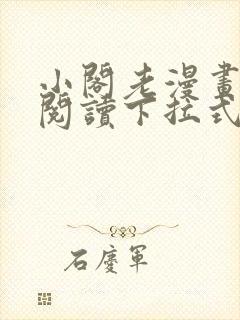 小閣老漫畫
閱讀下拉式
石慶軍